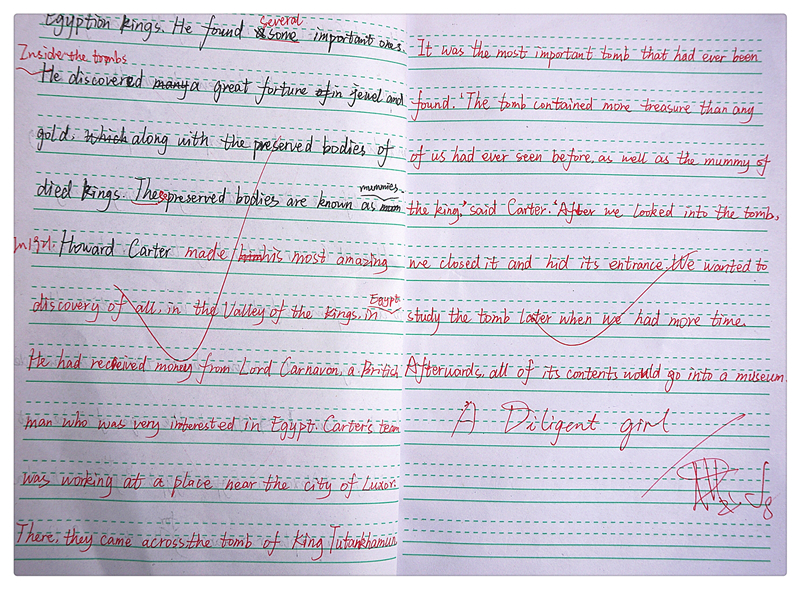 Egyption kings. He found several some important ones.
Inside the tombs
He discovered many a great fortune of in jewel and
gold, which along with the preserved bodies of
died kings. These preserved bodies are known as mummies.
In 1921. Howard Carter made him his most amazing
discovery of all, in the Valley of the Kings, in Egypt.
He had received money from Lord Carnavon, a British
man who was very interested in Egypt. Carter's team
was working at a place near the city of Luxor.
There, they came across the tomb of King Tutankhamun
It was the most important tomb that had ever been
found. 'The tomb contained more treasure than any
of us had ever seen before, as well as the mummy of
the king,' said Carter. 'After we looked into the tomb,
we closed it and hid its entrance. We wanted to
study the tomb later when we had more time.
Afterwards, all of its contents would go into a museum.
A Diligent girl